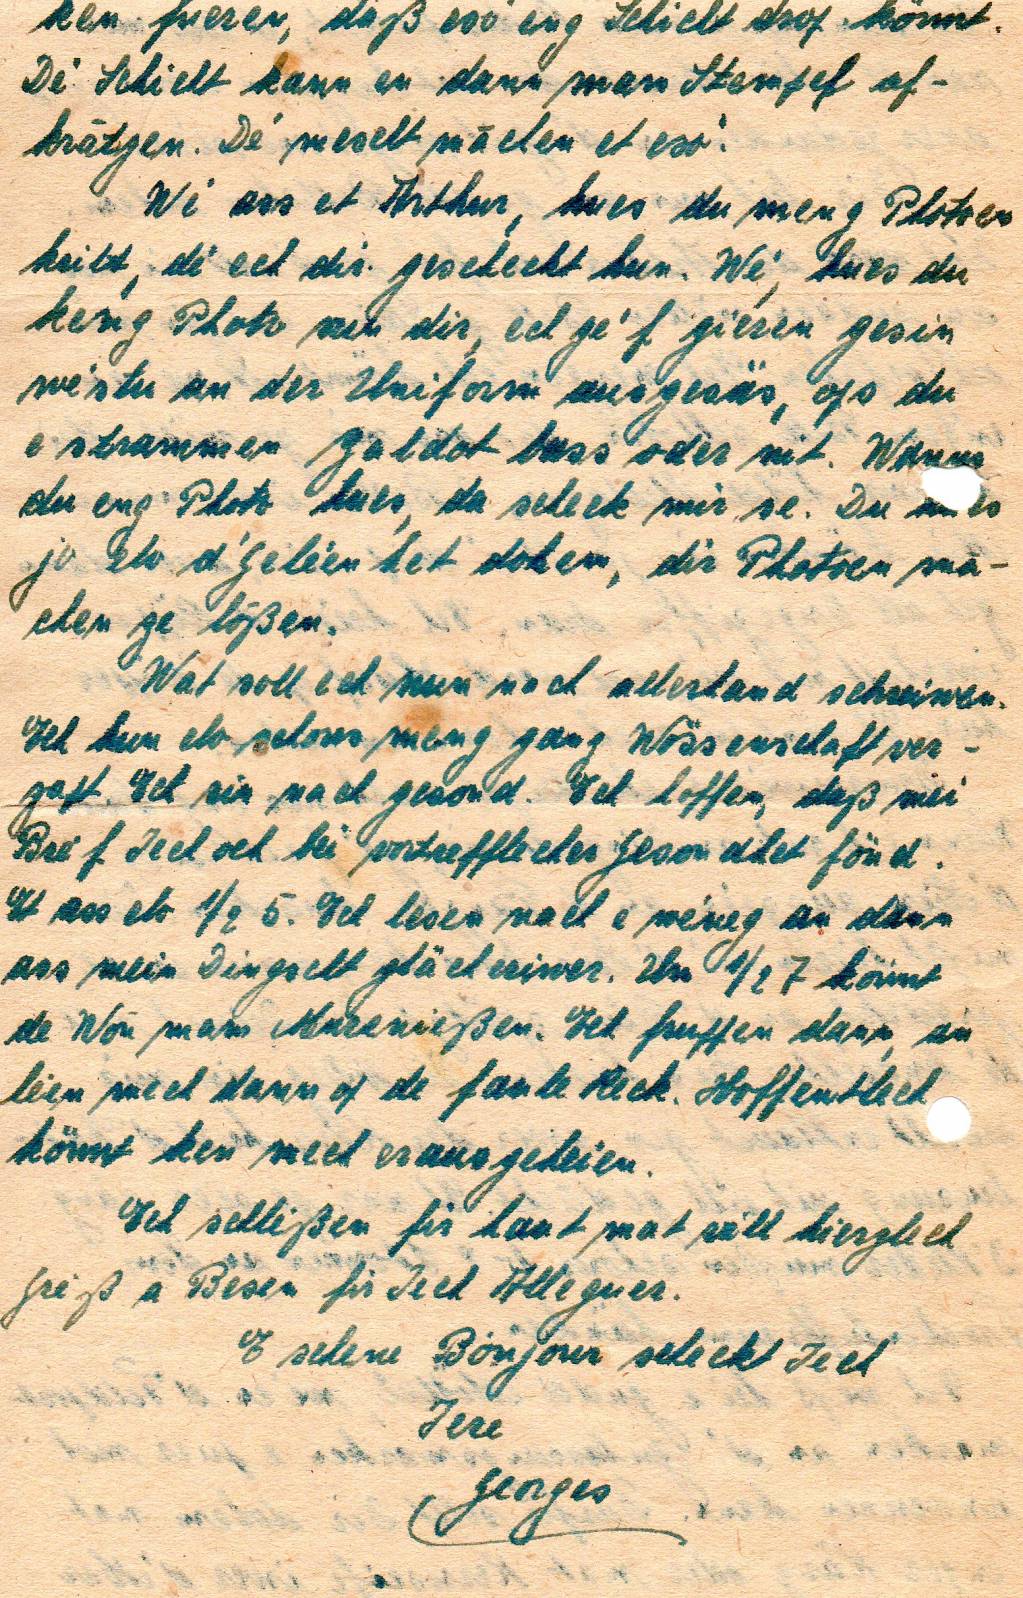 ken fueren, daß eso' eng Schicht drof könnt.
Dé Schicht kann en dann mam Stempel of-
krätzen. Dé mescht mächen et eso'.
Wi ass et Arthur, hues du meng Photoen
kritt, dé ech dir geschéckt hun. Wé, hues du
keng Photo vun dir, ech gé'f gieren gesin
wéistu an der Uniform ausgesäs, ops du
e strammen Zaldot bass oder nit. Wanns
du eng Photo hues, da schéck mir se. Du hues
jo elo d'Geléenhet dohem, dir Photoen mä-
chen ze lößen.
Wat soll ech nun nach allerhand schreiwen.
Ech hun elo schons meng ganz Wössenschaft ver-
zaft. Ech sin nach gesond. Ech hoffen, daß mei
Bréf Iech och bei vortrefflecher Gesondhet fönd.
Et ass elo 1/2 5. Ech lesen nach e wéneg an dann
ass mein Dingscht glächeriwer. Um 1/2 7 könnt
de Won mam Muerenießen. Ech fuffen dann, an
leen mech dann op de faule Réck. Hoffentlech
könnt ken mech erausgeheien.
Ech schléßen fir haut mat vill hierzlech
Gréß a Besen fir Iech Alleguer.
E schene Bonjour schéckt Iech
Iere
Georges